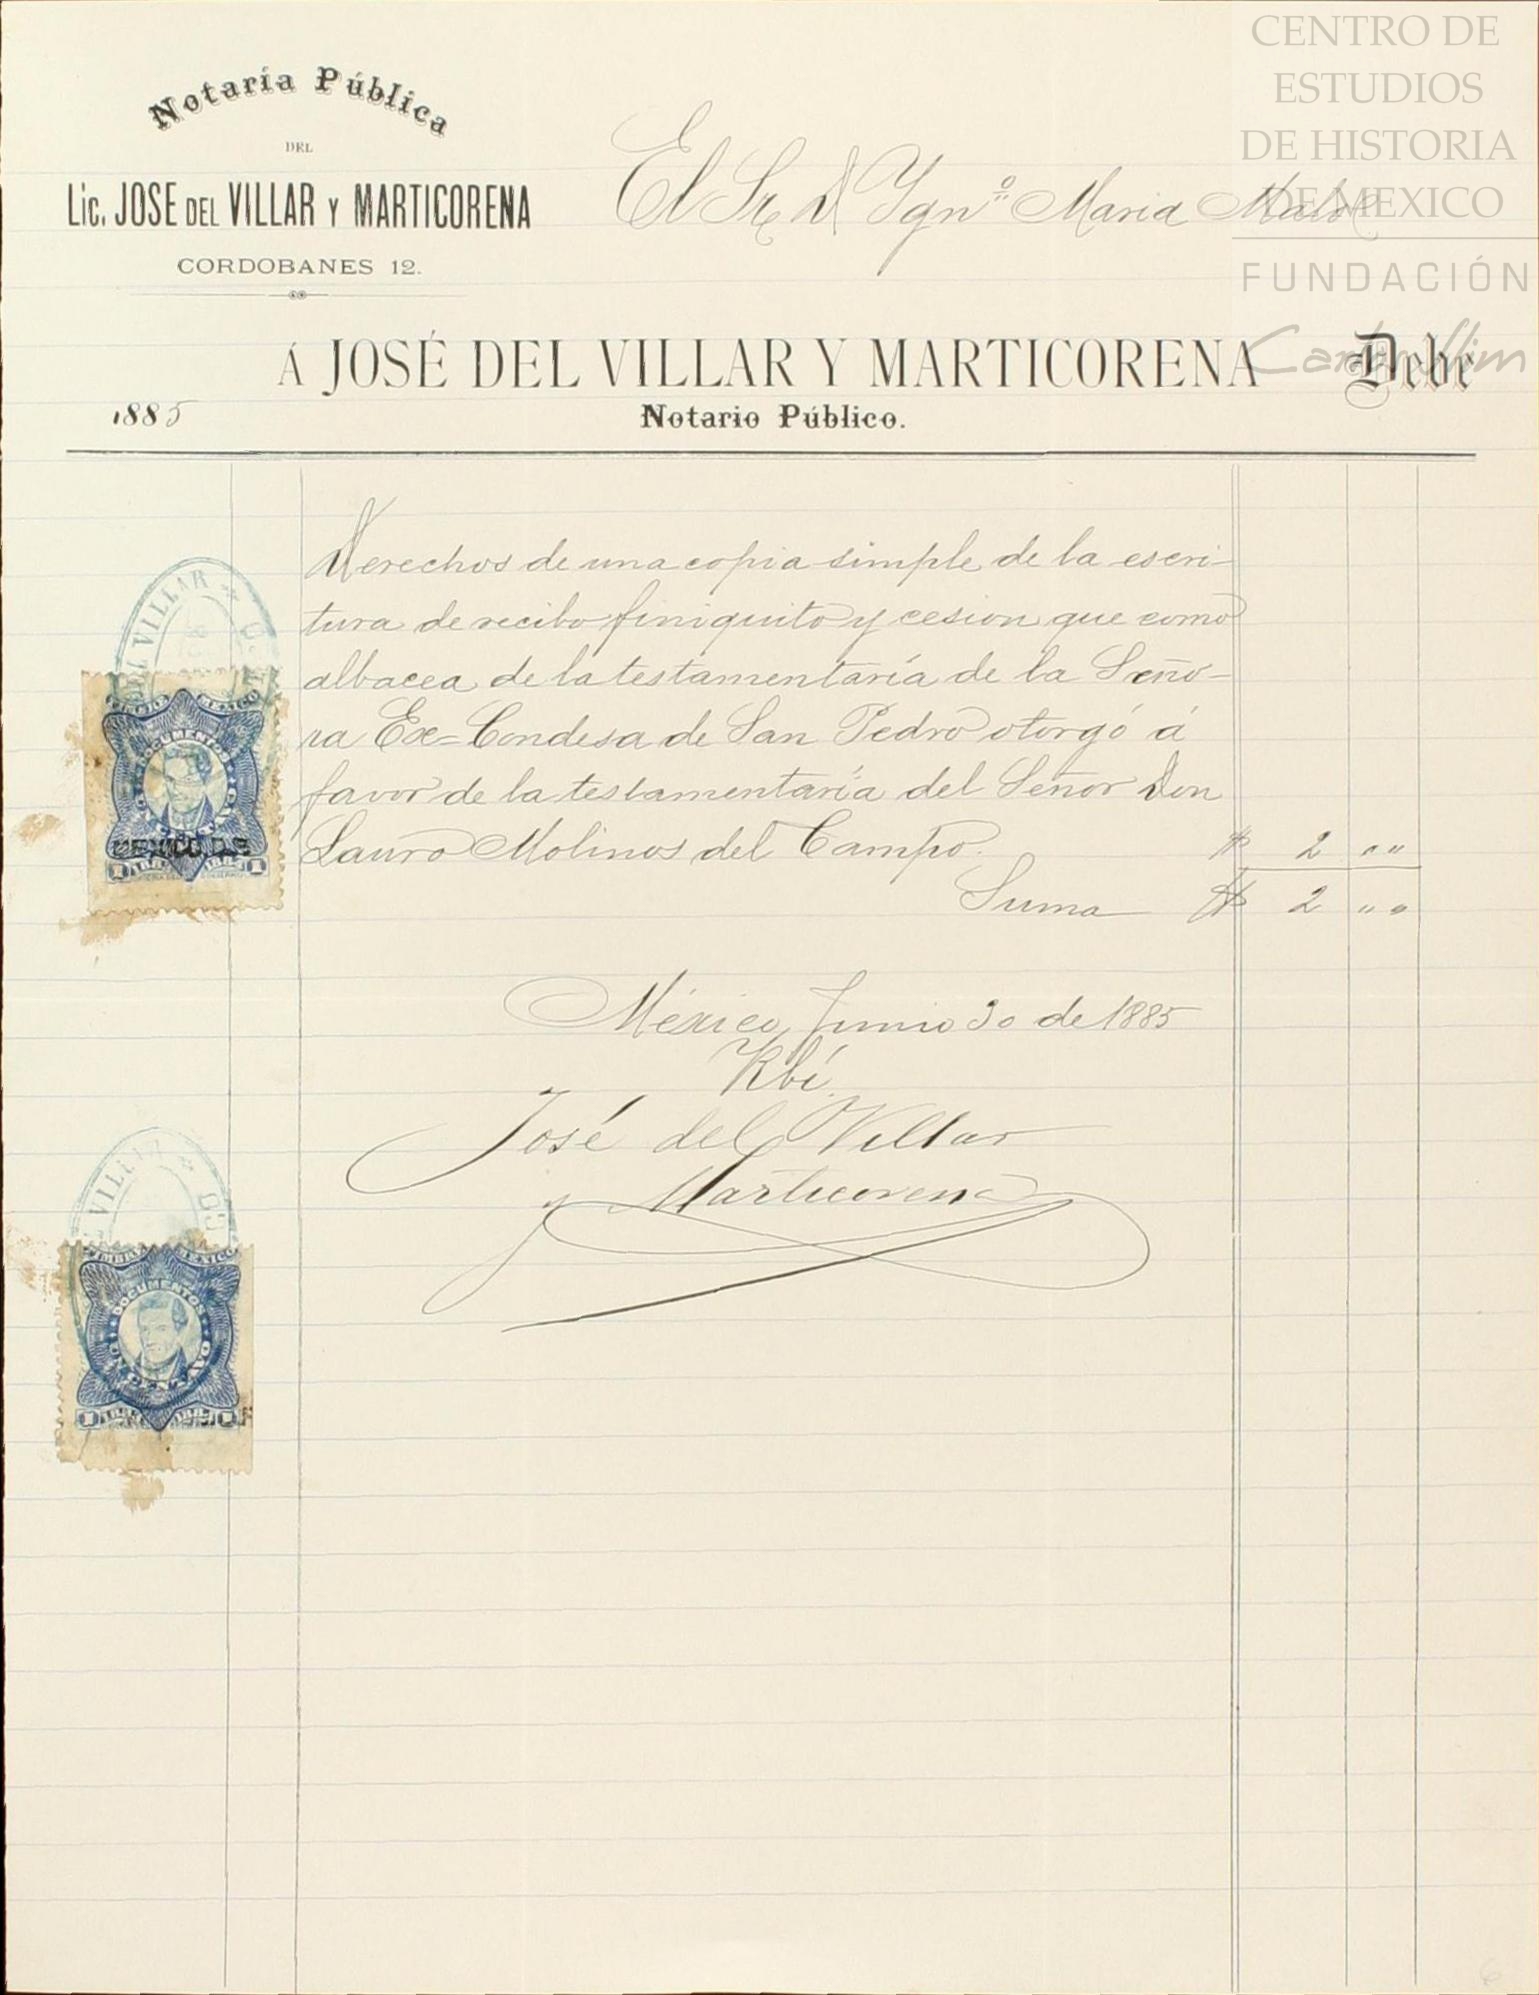 CENTRO DE
ESTUDIOS
DE HISTORIA
DE MEXICO
FUNDACIÓN
Carlos Slim
Notaría Pública
DEL
Lic. JOSE DEL VILLAR Y MARTICORENA
CORDOBANES 12.
El Sr. D Ygn.º Maria Malo
Á JOSÉ DEL VILLAR Y MARTICORENA Debe
1885 Notario Público.
Derechos de una copia simple de la escri-
tura de recibo finiquito y cesion que como
albacea de la testamentaría de la Seño-
ra Ex=Condesa de San Pedro otorgó á
favor de la testamentaría del Señor Don
Lauro Molinos del Campo. $ 2 ""
Suma $ 2 ""
México, Junio 30 de 1885
Rbí.
José del Villar
y Marticorena
DEL VILLAR *
TIMBRE MEXICO
DOCUMENTOS
UN CENTAVO
MEXICO D.F.
1 1
VILLAR *
TIMBRE MEXICO
DOCUMENTOS
UN CENTAVO
1 1
6